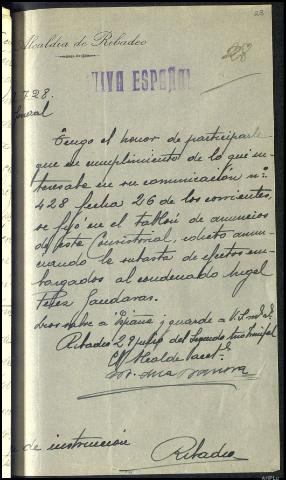 28
Alcaldía de Ribadeo
¡VIVA ESPAÑA!
28
7.28.
Tengo el honor de participarle
que en cumplimiento de lo que in-
teresaba en su comunicación nº.
428 fecha 26 de los corrientes,
se fijó en el tablón de anuncios
de esta Consistorial, edicto anun-
ciando la subasta de efectos em-
bargados al condenado Angel
Perez
Dios salve a España y guarde a V.S. m. a.
Ribadeo 29 julio del Segundo Año Triunfal
El Alcalde acctal.
de instrucción
Ribadeo